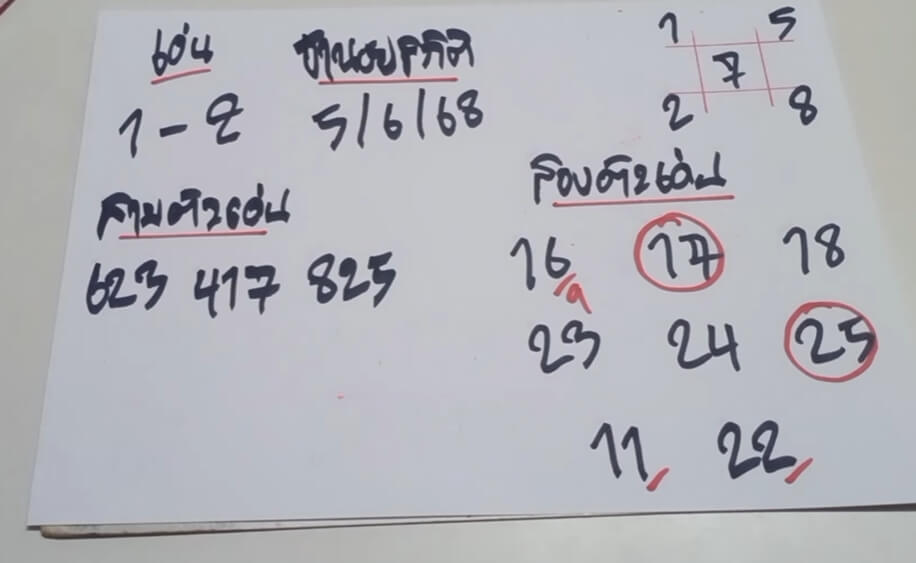 เด่น
1 - 2
ฮานอยปกติ
5/6/68
1 5
7
2 8
สามตัวเด่น
623 417 825
สองตัวเด่น
16 17 18
23 24 25
11 22